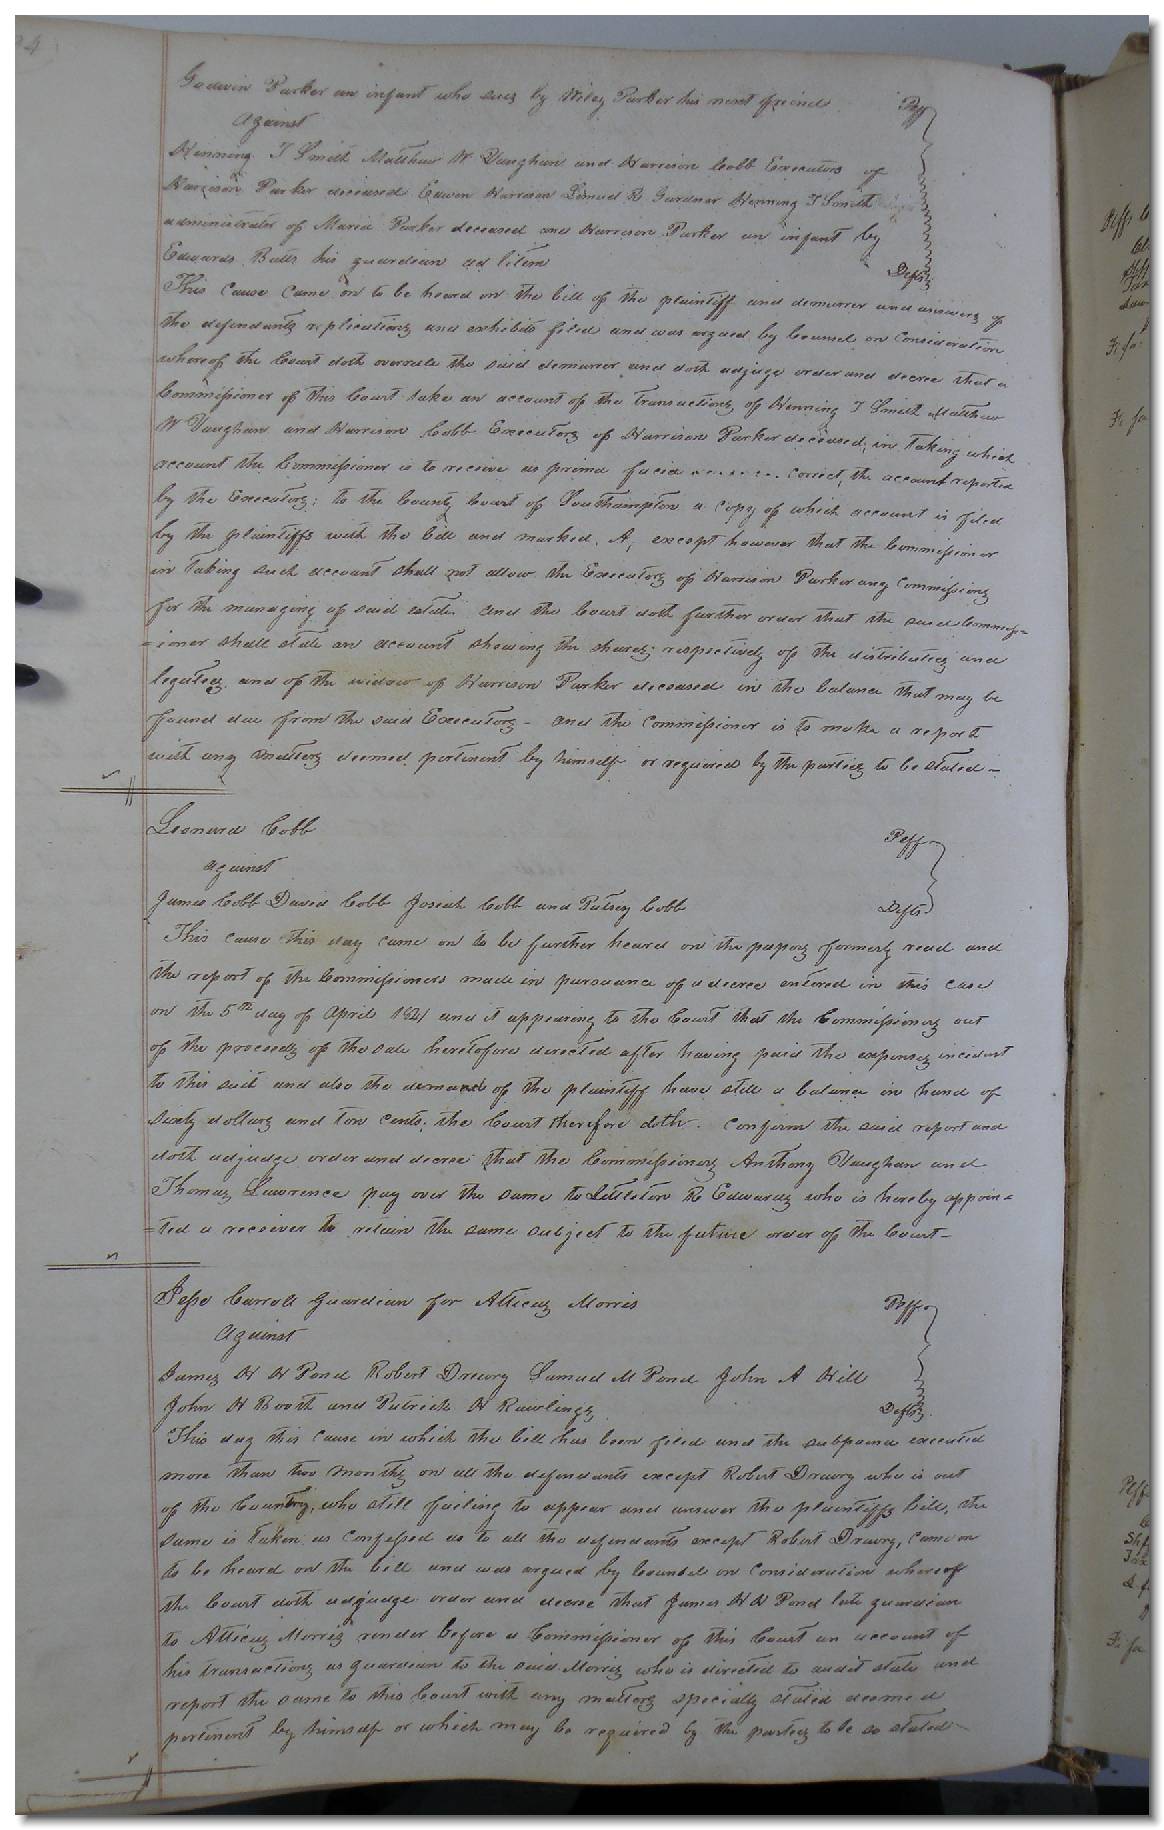 Godwin Parker an infant who sues by Wiley Parker his next friend Plff
against
Henning T Smith Matthew W Vaughan and Harrison Cobb Executors of
Harrison Parker deceased Edwin Harrison Lemuel R Gardner Henning T Smith
administrator of Maria Parker deceased and Harrison Parker an infant by
Edwards Butts his guardian ad litem Defts
This cause came on to be heard on the bill of the plaintiff and demurrer and answers of
the defendants replications and exhibits filed and was argued by Counsel on Consideration
whereof the Court doth overrule the said demurrer and doth adjudge order and decree that a
Commissioner of this Court take an account of the transactions of Henning T Smith Matthew
W Vaughan and Harrison Cobb Executors of Harrison Parker deceased, in taking which
account the Commissioner is to receive as prima facia ........ correct, the account reported
by the Executors: to the County Court of Southampton a copy of which account is filed
by the plaintiffs with the bill and marked. A, except however that the Commissioner
in taking such account shall not allow the Executors of Harrison Parker any Commissions
for the managing of said estate. and the Court doth further order that the said Commiss=
=ioner shall state an account shewing the shares respectively of the distributees and
legatees, and of the widow of Harrison Parker deceased in the balance that may be
found due from the said Executors - and the Commissioner is to make a report
with any matters deemed pertinent by himself or required by the parties to be stated -
Leonard Cobb Plff
against
James Cobb David Cobb Josiah Cobb and Patsey Cobb Defts
This cause this day came on to be further heard on the papers formerly read and
the report of the Commissioners made in pursuance of a decree entered in this case
on the 5th day of April 1821 and it appearing to the Court that the Commissioners out
of the proceeds of the sale heretofore directed after having paid the expenses incident
to this suit and also the demand of the plaintiff have still a balance in hand of
sixty dollars and ten cents; the Court therefore doth. confirm the said report and
doth adjudge order and decree that the Commissioners Anthony Vaughan and
Thomas Lawrence pay over the same to Littleton R Edwards who is hereby appoin=
=ted a receiver to retain the same subject to the future order of the Court -
Jesse Carroll Guardian for Atticus Morris Plff
against
James H H Pond Robert Drewry Samuel M Pond John A Hill
John H Booth and Patrick H Rawlings Defts
This day this cause in which the bill has been filed and the subpoena executed
more than two months on all the defendants except Robert Drewry who is out
of the Country, who still failing to appear and answer the plaintiffs bill, the
same is taken as confessed as to all the defendants except Robert Drewry, came on
to be heard on the bill and was argued by Counsel on Consideration whereof
the Court doth adjudge order and decree that James H H Pond late guardian
to Atticus Morris render before a Commissioner of this Court an account of
his transactions as guardian to the said Morris who is directed to audit state and
report the same to this Court with any matters specially stated deemed
pertinent by himself or which may be required by the parties to be so stated -